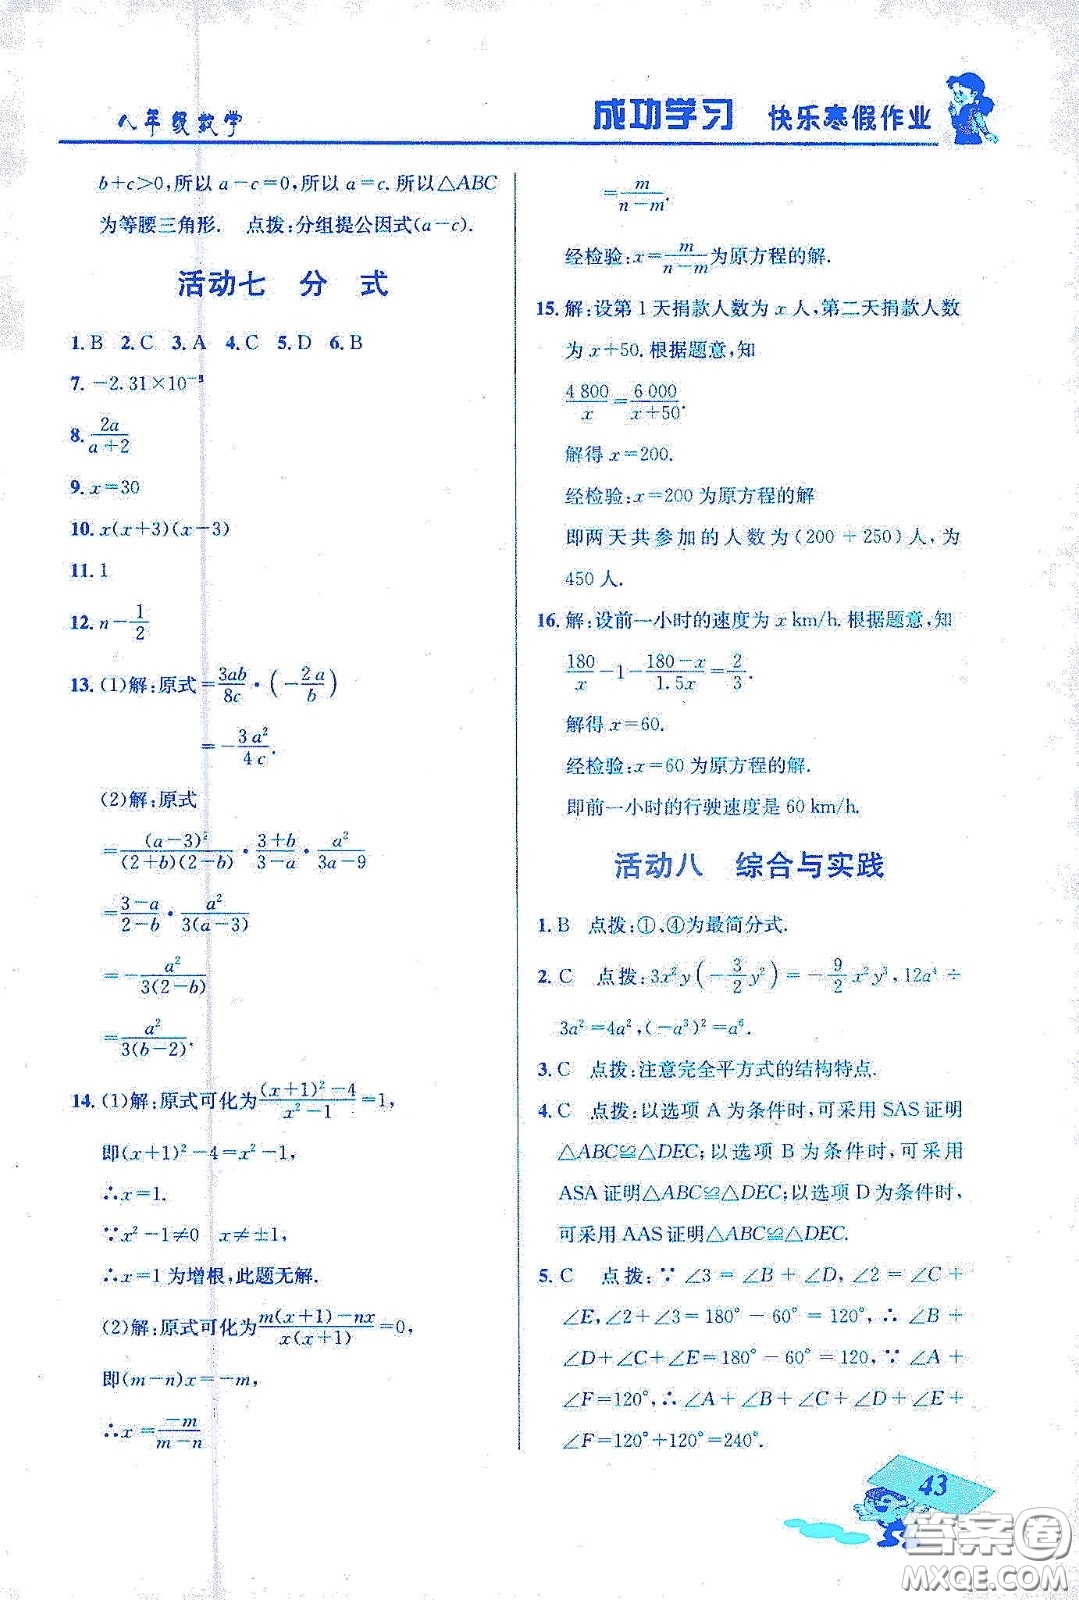 八年级数学
成功学习 快乐寒假作业
b+c>0,所以 a-c=0,所以 a=c.所以△ABC
为等腰三角形. 点拨:分组提公因式(a-c).
活动七 分 式
1.B 2.C 3.A 4.C 5.D 6.B
7.-2.31×10⁻³
8.2a/(a+2)
9.x=30
10.x(x+3)(x-3)
11.1
12.n-1/2
13.(1)解:原式=3ab/8c·(-2a/b)
=-3a²/4c.
(2)解:原式
=(a-3)²/((2+b)(2-b))·(3+b)/(3-a)·a²/(3a-9)
=(3-a)/(2-b)·a²/(3(a-3))
=-a²/(3(2-b))
=a²/(3(b-2)).
14.(1)解:原式可化为((x+1)²-4)/(x²-1)=1,
即(x+1)²-4=x²-1,
∴x=1.
∵x²-1≠0 x≠±1,
∴x=1 为增根,此题无解.
(2)解:原式可化为(m(x+1)-nx)/(x(x+1))=0,
即(m-n)x=-m,
∴x=-m/(m-n)
=m/(n-m).
经检验:x=m/(n-m)为原方程的解.
15.解:设第 1 天捐款人数为 x 人,第二天捐款人数
为 x+50.根据题意,知
4 800/x=6 000/(x+50).
解得 x=200.
经检验:x=200 为原方程的解
即两天共参加的人数为(200+250)人,为
450 人.
16.解:设前一小时的速度为 x km/h.根据题意,知
180/x-1-(180-x)/1.5x=2/3.
解得 x=60.
经检验:x=60 为原方程的解.
即前一小时的行驶速度是 60 km/h.
活动八 综合与实践
1.B 点拨:①、④为最简分式.
2.C 点拨:3x²y(-3/2y²)=-9/2x²y³,12a⁴÷
3a²=4a²,(-a³)²=a⁶.
3.C 点拨:注意完全平方式的结构特点.
4.C 点拨:以选项 A 为条件时,可采用 SAS 证明
△ABC≌△DEC;以选项 B 为条件时,可采用
ASA 证明△ABC≌△DEC;以选项 D 为条件时,
可采用 AAS 证明△ABC≌△DEC.
5.C 点拨:∵∠3=∠B+∠D,∠2=∠C+
∠E,∠2+∠3=180°-60°=120°,∴∠B+
∠D+∠C+∠E=180°-60°=120,∵∠A+
∠F=120°,∴∠A+∠B+∠C+∠D+∠E+
∠F=120°+120°=240°.
43
答案卷
MXQE.COM